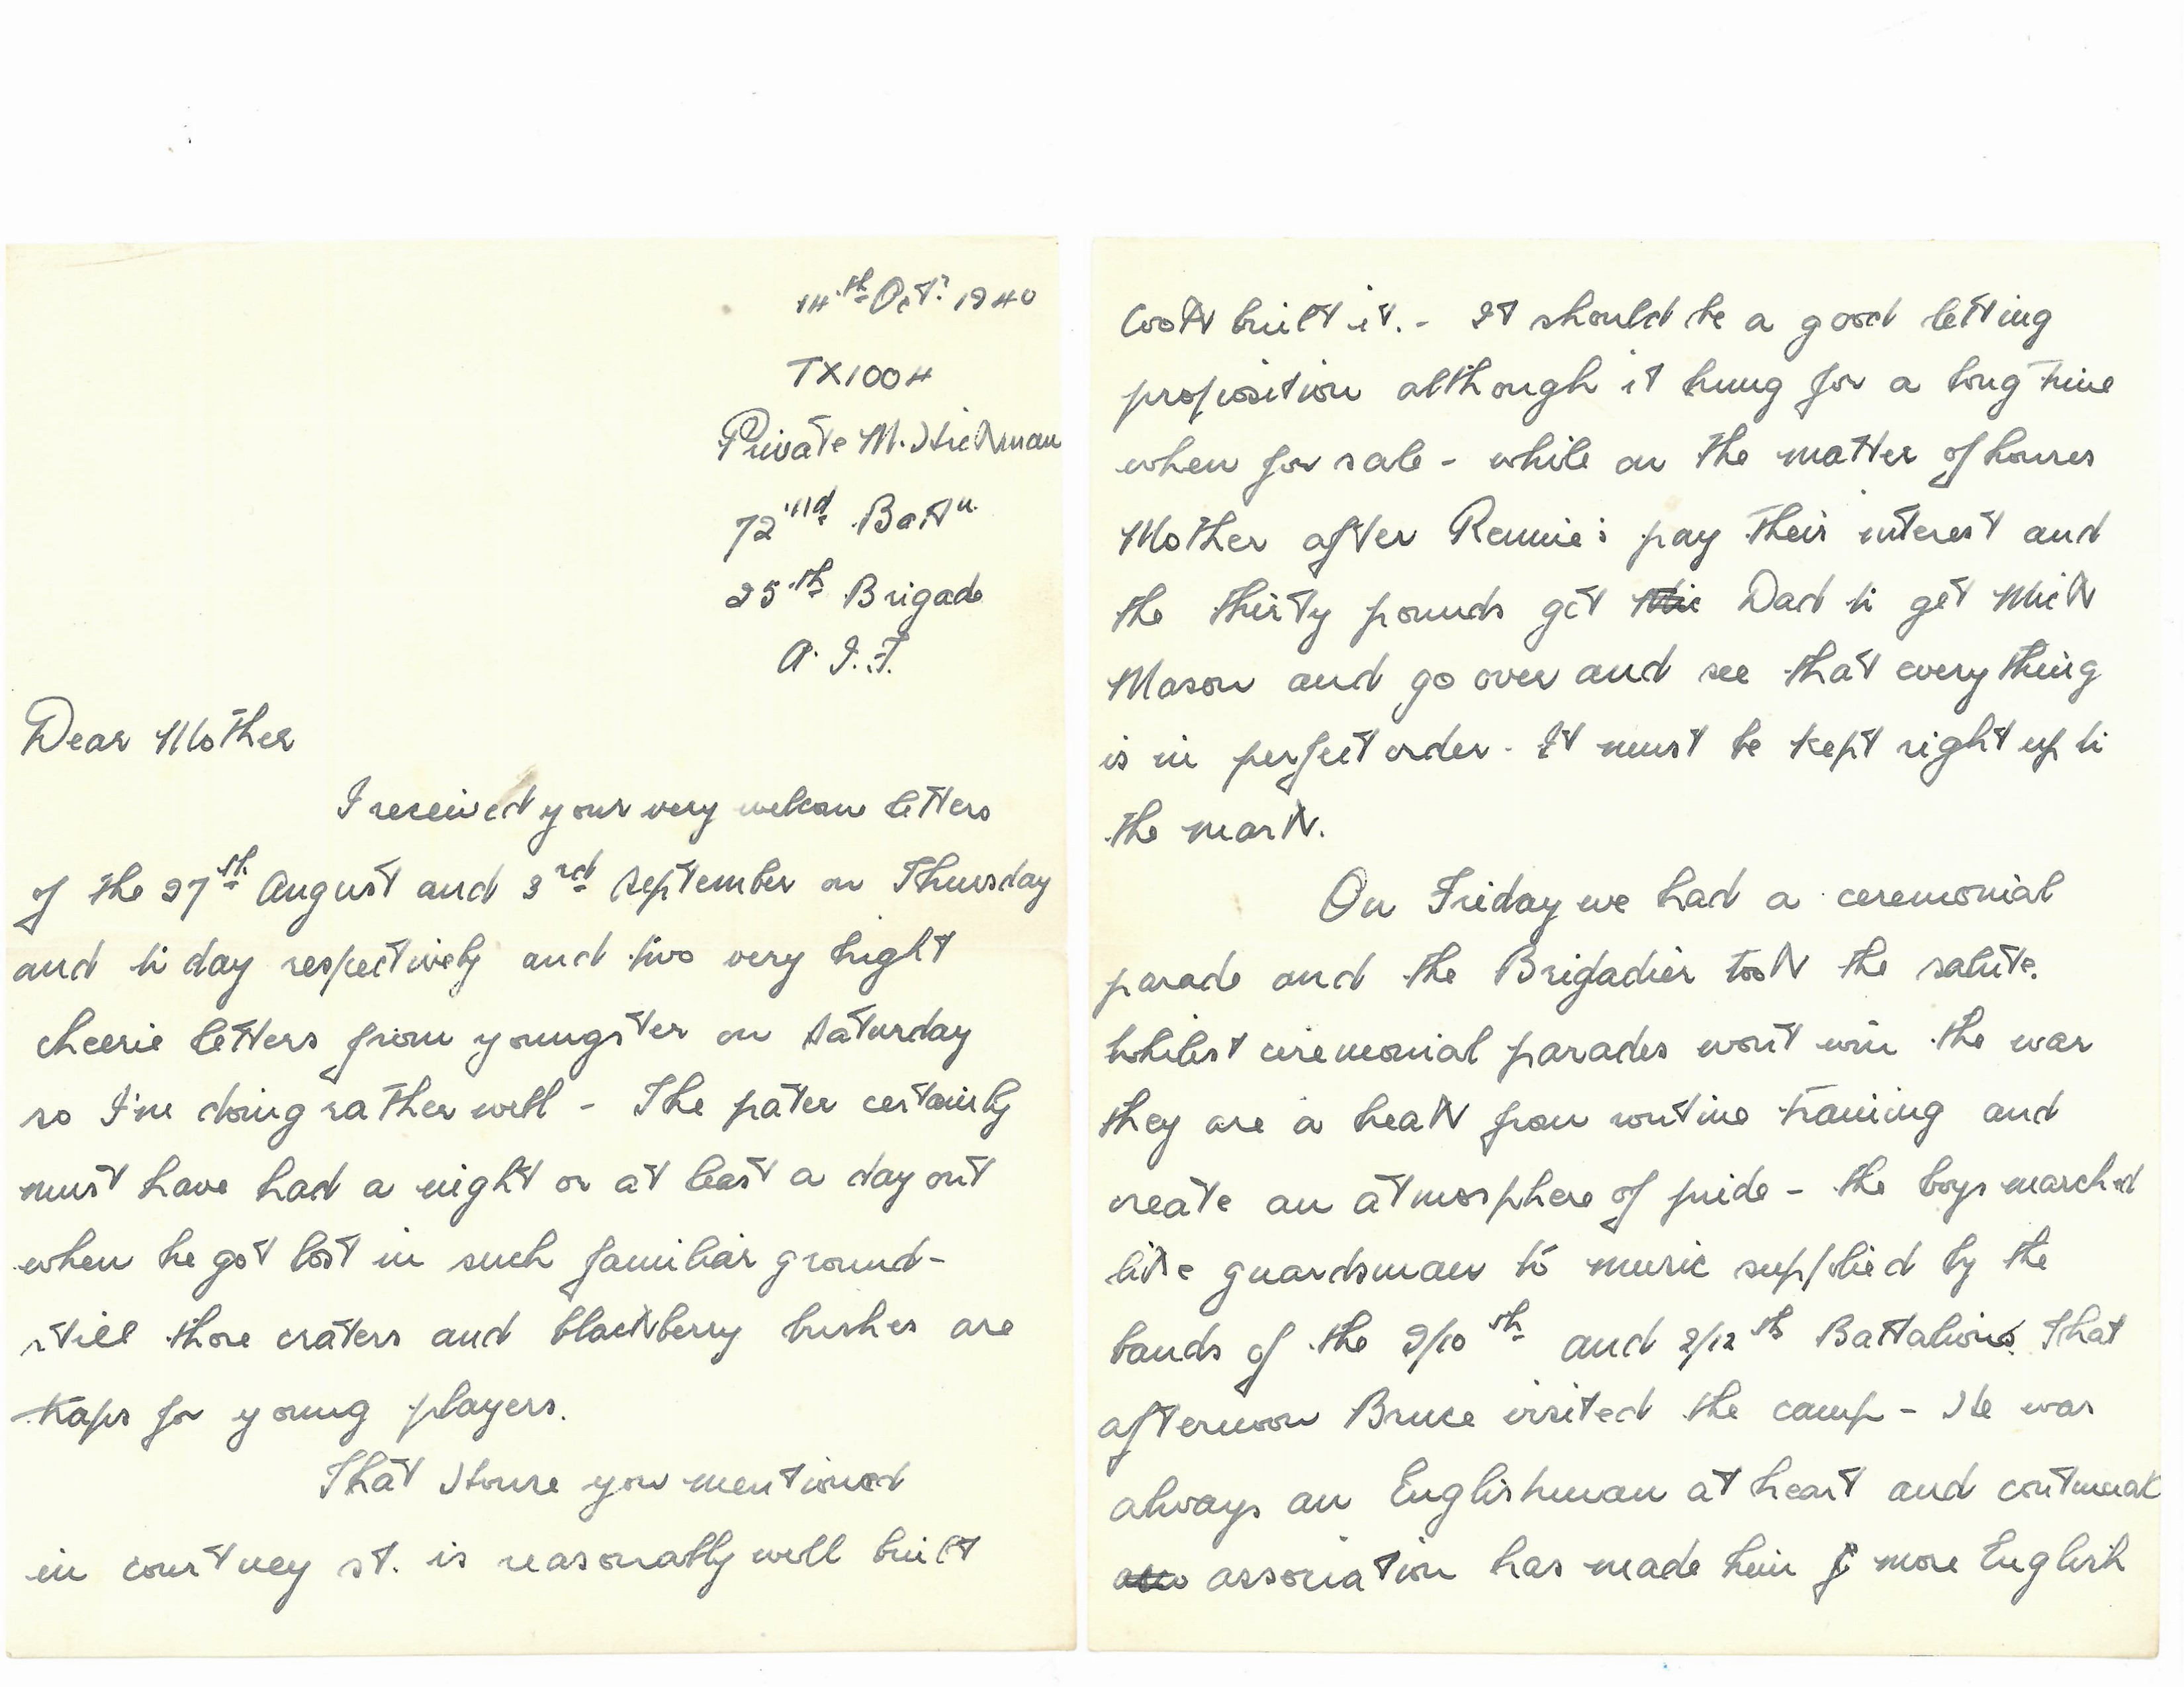 14th Oct. 1940
TX1004
Private M. Hickman
72nd Battn.
25th Brigade
A. I. F.
Dear Mother
I received your very welcom letters
of the 27th August and 3rd September on Thursday
and to day respectively and two very bright
cheerie letters from youngster on Saturday
so I'm doing rather well - The pater certainly
must have had a night or at least a day out
when he got lost in such familiar ground -
still those craters and blackberry bushes are
traps for young players.
That House you mentioned
in courtney st. is reasonably well built
Cook built it. - It should be a good letting
proposition although it hung for a long time
when for sale - while on the matter of houses
Mother after Rennie's pay their interest and
the thirty pounds get Dad to get Mick
Mason and go over and see that everything
is in perfect order - It must be kept right up to
the mark.
On Friday we had a ceremonial
parade and the Brigadier took the salute.
Whilest ceremonial parades wont win the war
they are a break from routine training and
create an atmosphere of pride - the boys marched
like guardsman to music supplied by the
bands of the 2/10th and 2/12th Battalions. That
afternoon Bruce visited the camp - He was
always an Englishman at heart and continual
association has made him more English